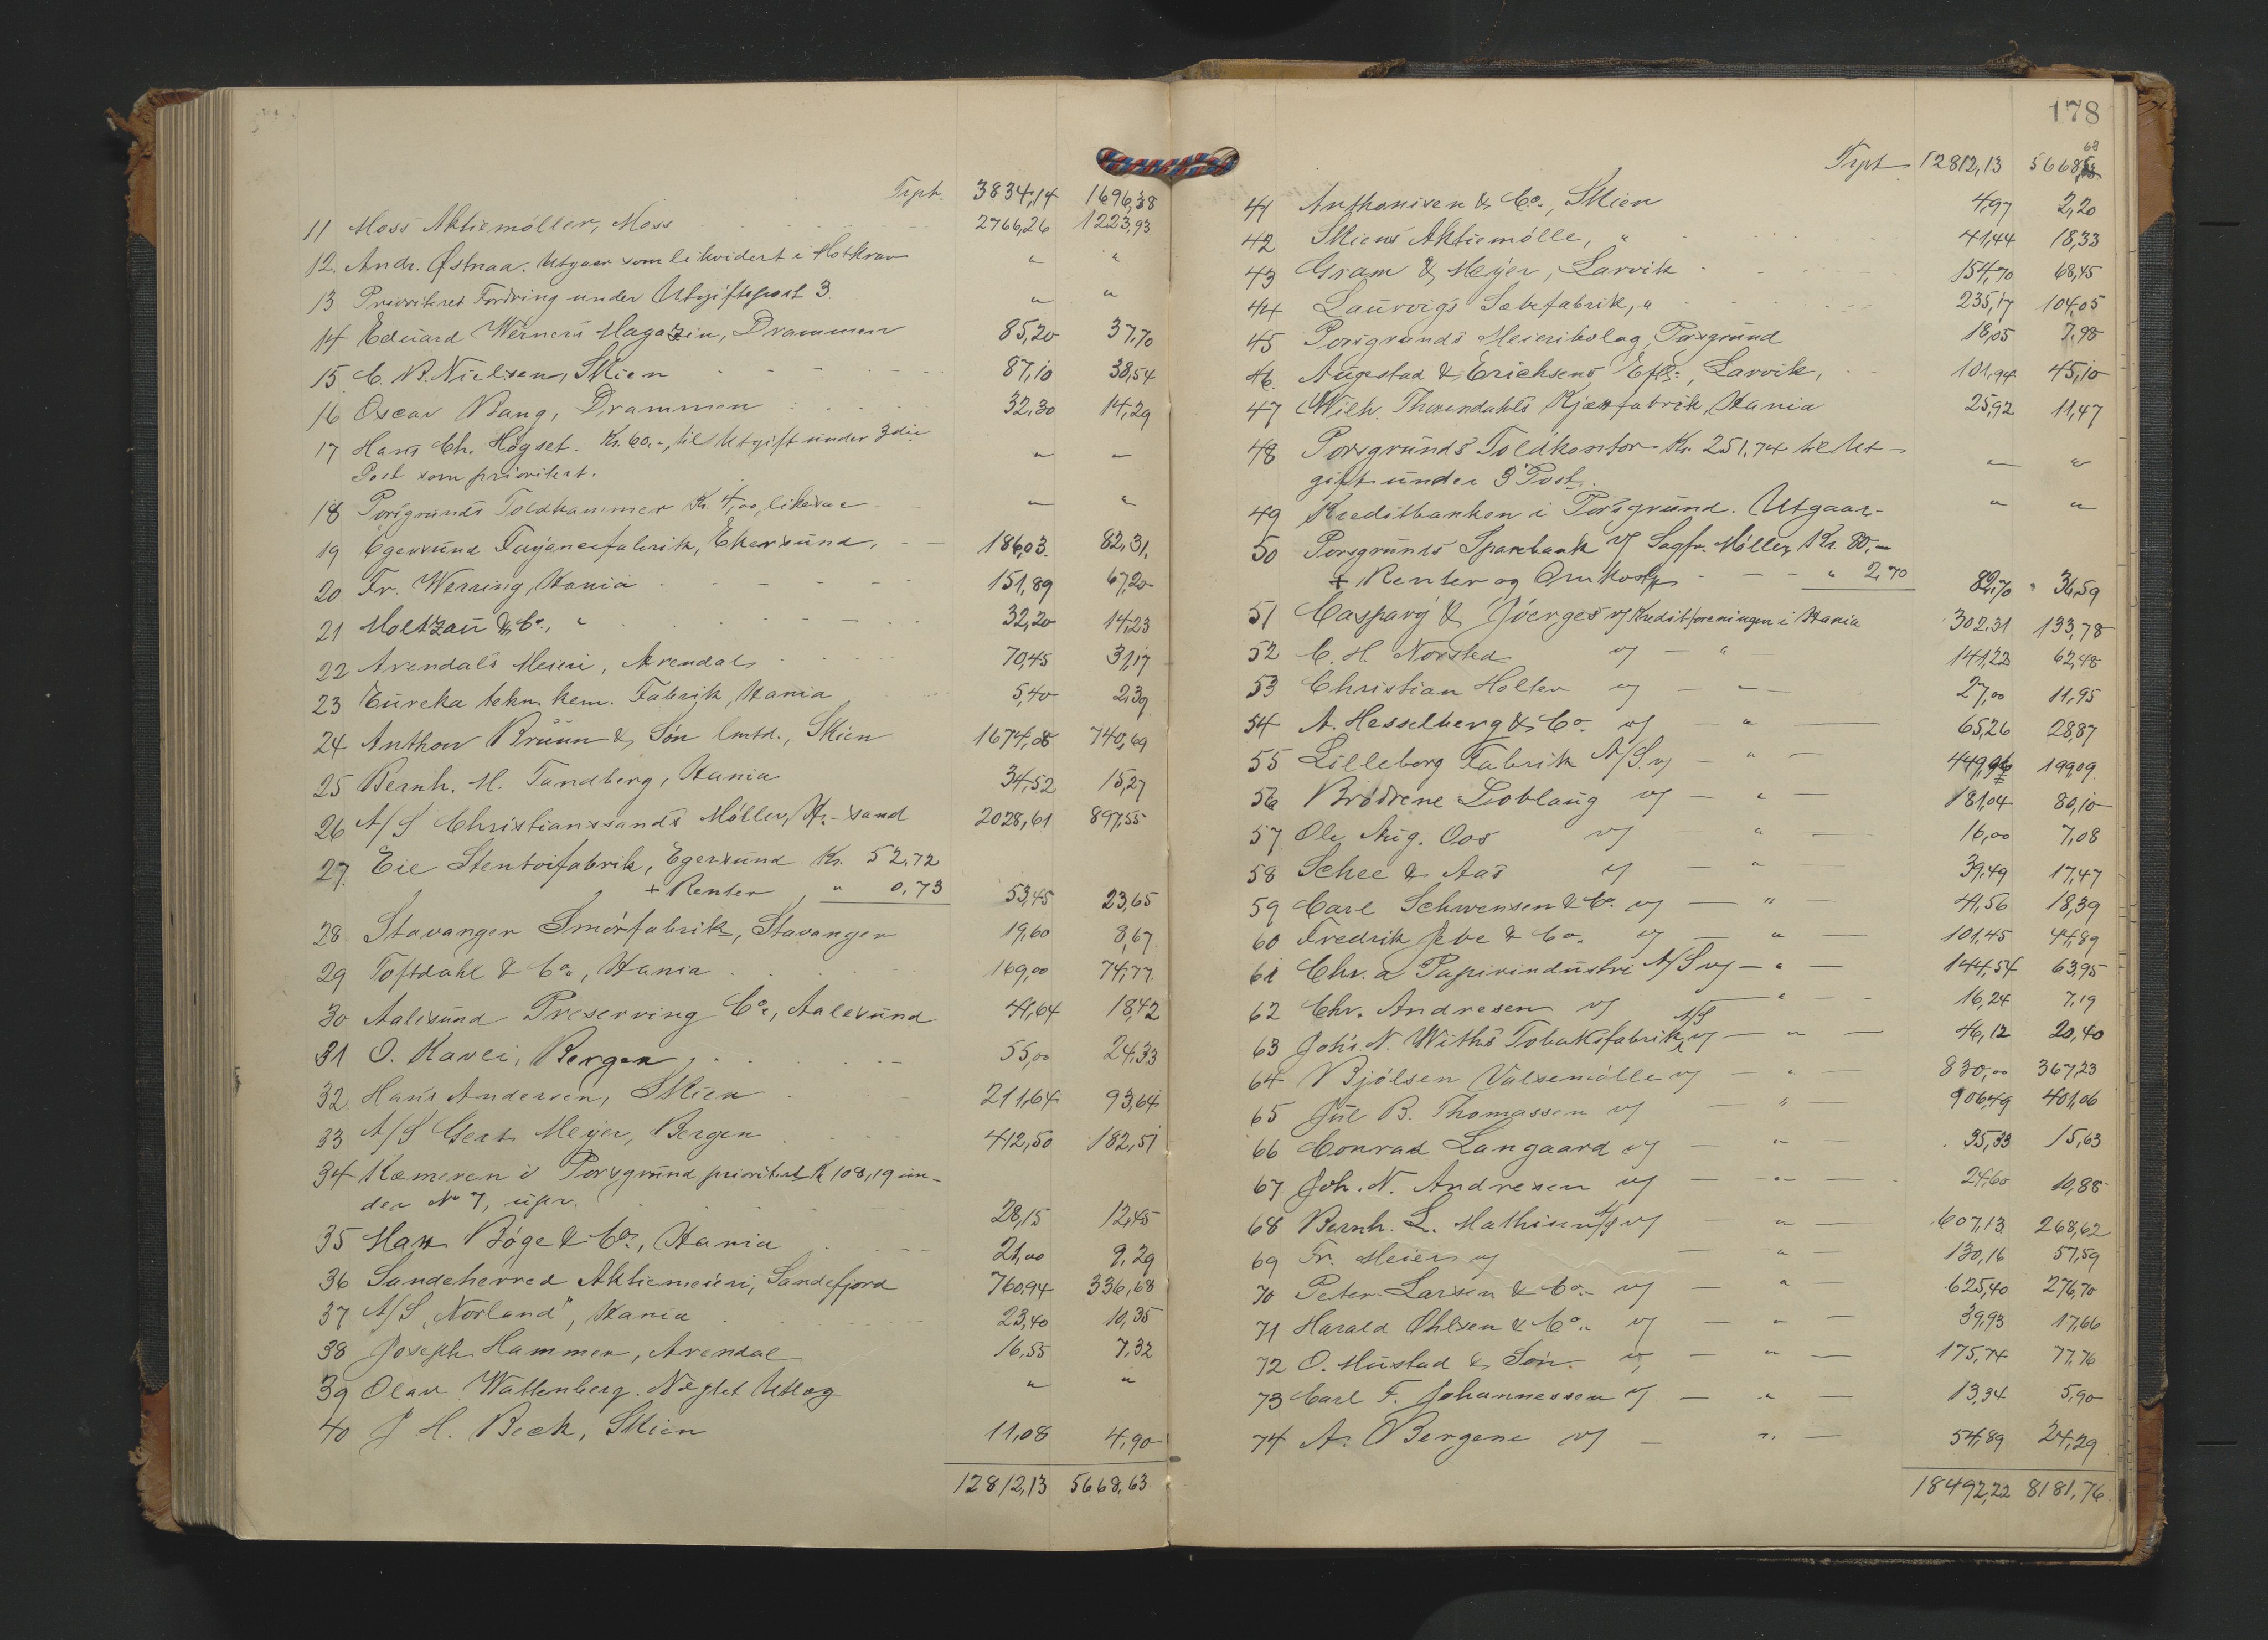 Trpt. 3834,14 1696,38
11 Moss Aktiemöller, Moss 2766,26 1223,93
12. Andr. Østnaa. Utgaar som likvidert i Motkrav " "
13 Prioriteret Fordring under Utgiftspost 3. " "
14 Eduard Werners Magazin, Drammen 85,20 37,70
15 C. B. Nielsen, Skien 87,10 38,54
16 Oscar Bang, Drammen 32,30 14,29
17 Hans Ch. Høgset. Kr. 60.-, til Utgift under 3die " "
Post som prioritert.
18 Porsgrunds Toldkammer Kr. 4,00, likesaa " "
19 Egersund Fayancefabrik, Ekersund, 186,03. 82,31,
20 Fr. Werring, Kania 151,89 67,20
21 Moltzau & Co., " 32,20 14,23
22 Arendals Meieri, Arendal 70,45 31,17
23 Eureka tekn. kem. Fabrik, Kania 5,40 2,39
24 Anthon Bruun & Søn lmtd., Skien 1674,08 740,69
25 Bernh. M. Tandberg, Kania 34,52 15,27
26 A/S Christianssands Møller, Kr.-sand 2028,61 897,55
27. Eie Stentøifabrik, Egersund Kr. 52,72
+ Renter " 0,73 53,45 23,65
28 Stavanger Smörfabrik, Stavanger 19,60 8,67
29 Toftdahl & Co., Kania 169,00 74,77
30 Aalesund Preserving Co., Aalesund 41,64 18,42
31 O. Kavli, Bergen, 55,00 24,33
32 Hans Andersen, Skien 211,64 93,64
33 A/S Gert Meyer, Bergen 412,50 182,51
34 Kæmneren i Porsgrund prioritert K 108,19 un-
der No 7, upr. 28,15 12,45
35 Max Bøge & Co., Kania 21,00 9,29
36 Sandeherred Aktiemeieri, Sandefjord 760,94 336,68
37 A/S "Norland", Kania 23,40 10,35
38 Joseph Hammer, Arendal 16,55 7,32
39 Olav Wattenberg. Nægtet Utlæg " "
40 J. H. Beck, Skien 11,08 4,90
12812,13 5668,63
178
68
Trpt 12812,13 5668,63
41 Anthonisen & Co., Skien 4,97 2,20
42 Skiens Aktiemølle, " 41,44 18,33
43 Gram & Meyer, Larvik 154,70 68,45
44 Laurvigs Sæbefabrik, " 235,17 104,05
45 Porsgrunds Meieribolag, Porsgrund 18,05 7,98
46. Augestad & Erichsens Eftf., Larvik, 101,94 45,10
47 Wilh. Thorendahls Kjæxfabrik, Kania 25,92 11,47
48 Porsgrunds Toldkontor Kr. 251,74 til Ut- " "
gift under 3' Post.
49 Kreditbanken i Porsgrund. Utgaar. " "
50 Porsgrunds Sparebank v/ Sagfr. Møller Kr. 80,-
+ Renter og Omkostn " 2,70 82,70 36,59
51 Caspary & Joerges v/ Kreditforeningen i Kania 302,31 133,78
52 C. H. Norsted v/ — " — 141,22 62,48
53 Christian Holter v/ — " — 27,00 11,95
54 A. Hesselberg & Co. v/ — " — 65,26 28,87
55 Lilleborg Fabrik A/S v/ — " — 449,96 199,09
56 Brødrene Loblaug v/ — " — 181,04 80,10
57 Ole Aug. Oos v/ " — 16,00 7,08
58 Schee & Aas v/ — " — 39,49 17,47
59 Carl Schwensen & Co. v/ — " 41,56 18,39
60 Fredrik Jebe & Co. v/ — " — 101,45 44,89
61 Chr.a Papirindustri A/S v/ — " — 144,54 63,95
62 Chr. Andresen v/ — " — 16,24 7,19
63 Johs. N. Withs Tobaksfabrik A/S v/ — " — 46,12 20,40
64 Bjølsen Valsemølle v/ — " — 830,00 367,23
65 Jul B. Thomassen v/ — " — 906,49 401,06
66 Conrad Langaard v/ — " — 35,33 15,63
67 Joh. N. Andresen v/ — " — 24,60 10,88
68 Bernh. L. Mathisen A/S v/ — " — 607,13 268,62
69 Fr. Meier v/ — " 130,16 57,59
70 Peter Larsen & Co. v/ — " — 625,40 276,70
71 Harald Ohlsen & Co. v/ — " — 39,93 17,66
72 O. Mustad & Søn. v/ — " — 175,74 77,76
73 Carl F. Johannessen v/ — " — 13,34 5,90
74 A. Bergene v/ — " — 54,89 24,29
18492,22 8181,76